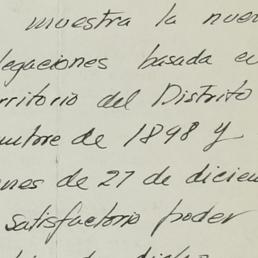 muestra la nuev
legaciones basada en
rritorio del Distrito
embre de 1898 y
ones de 27 de diciem
satisfactorio poder